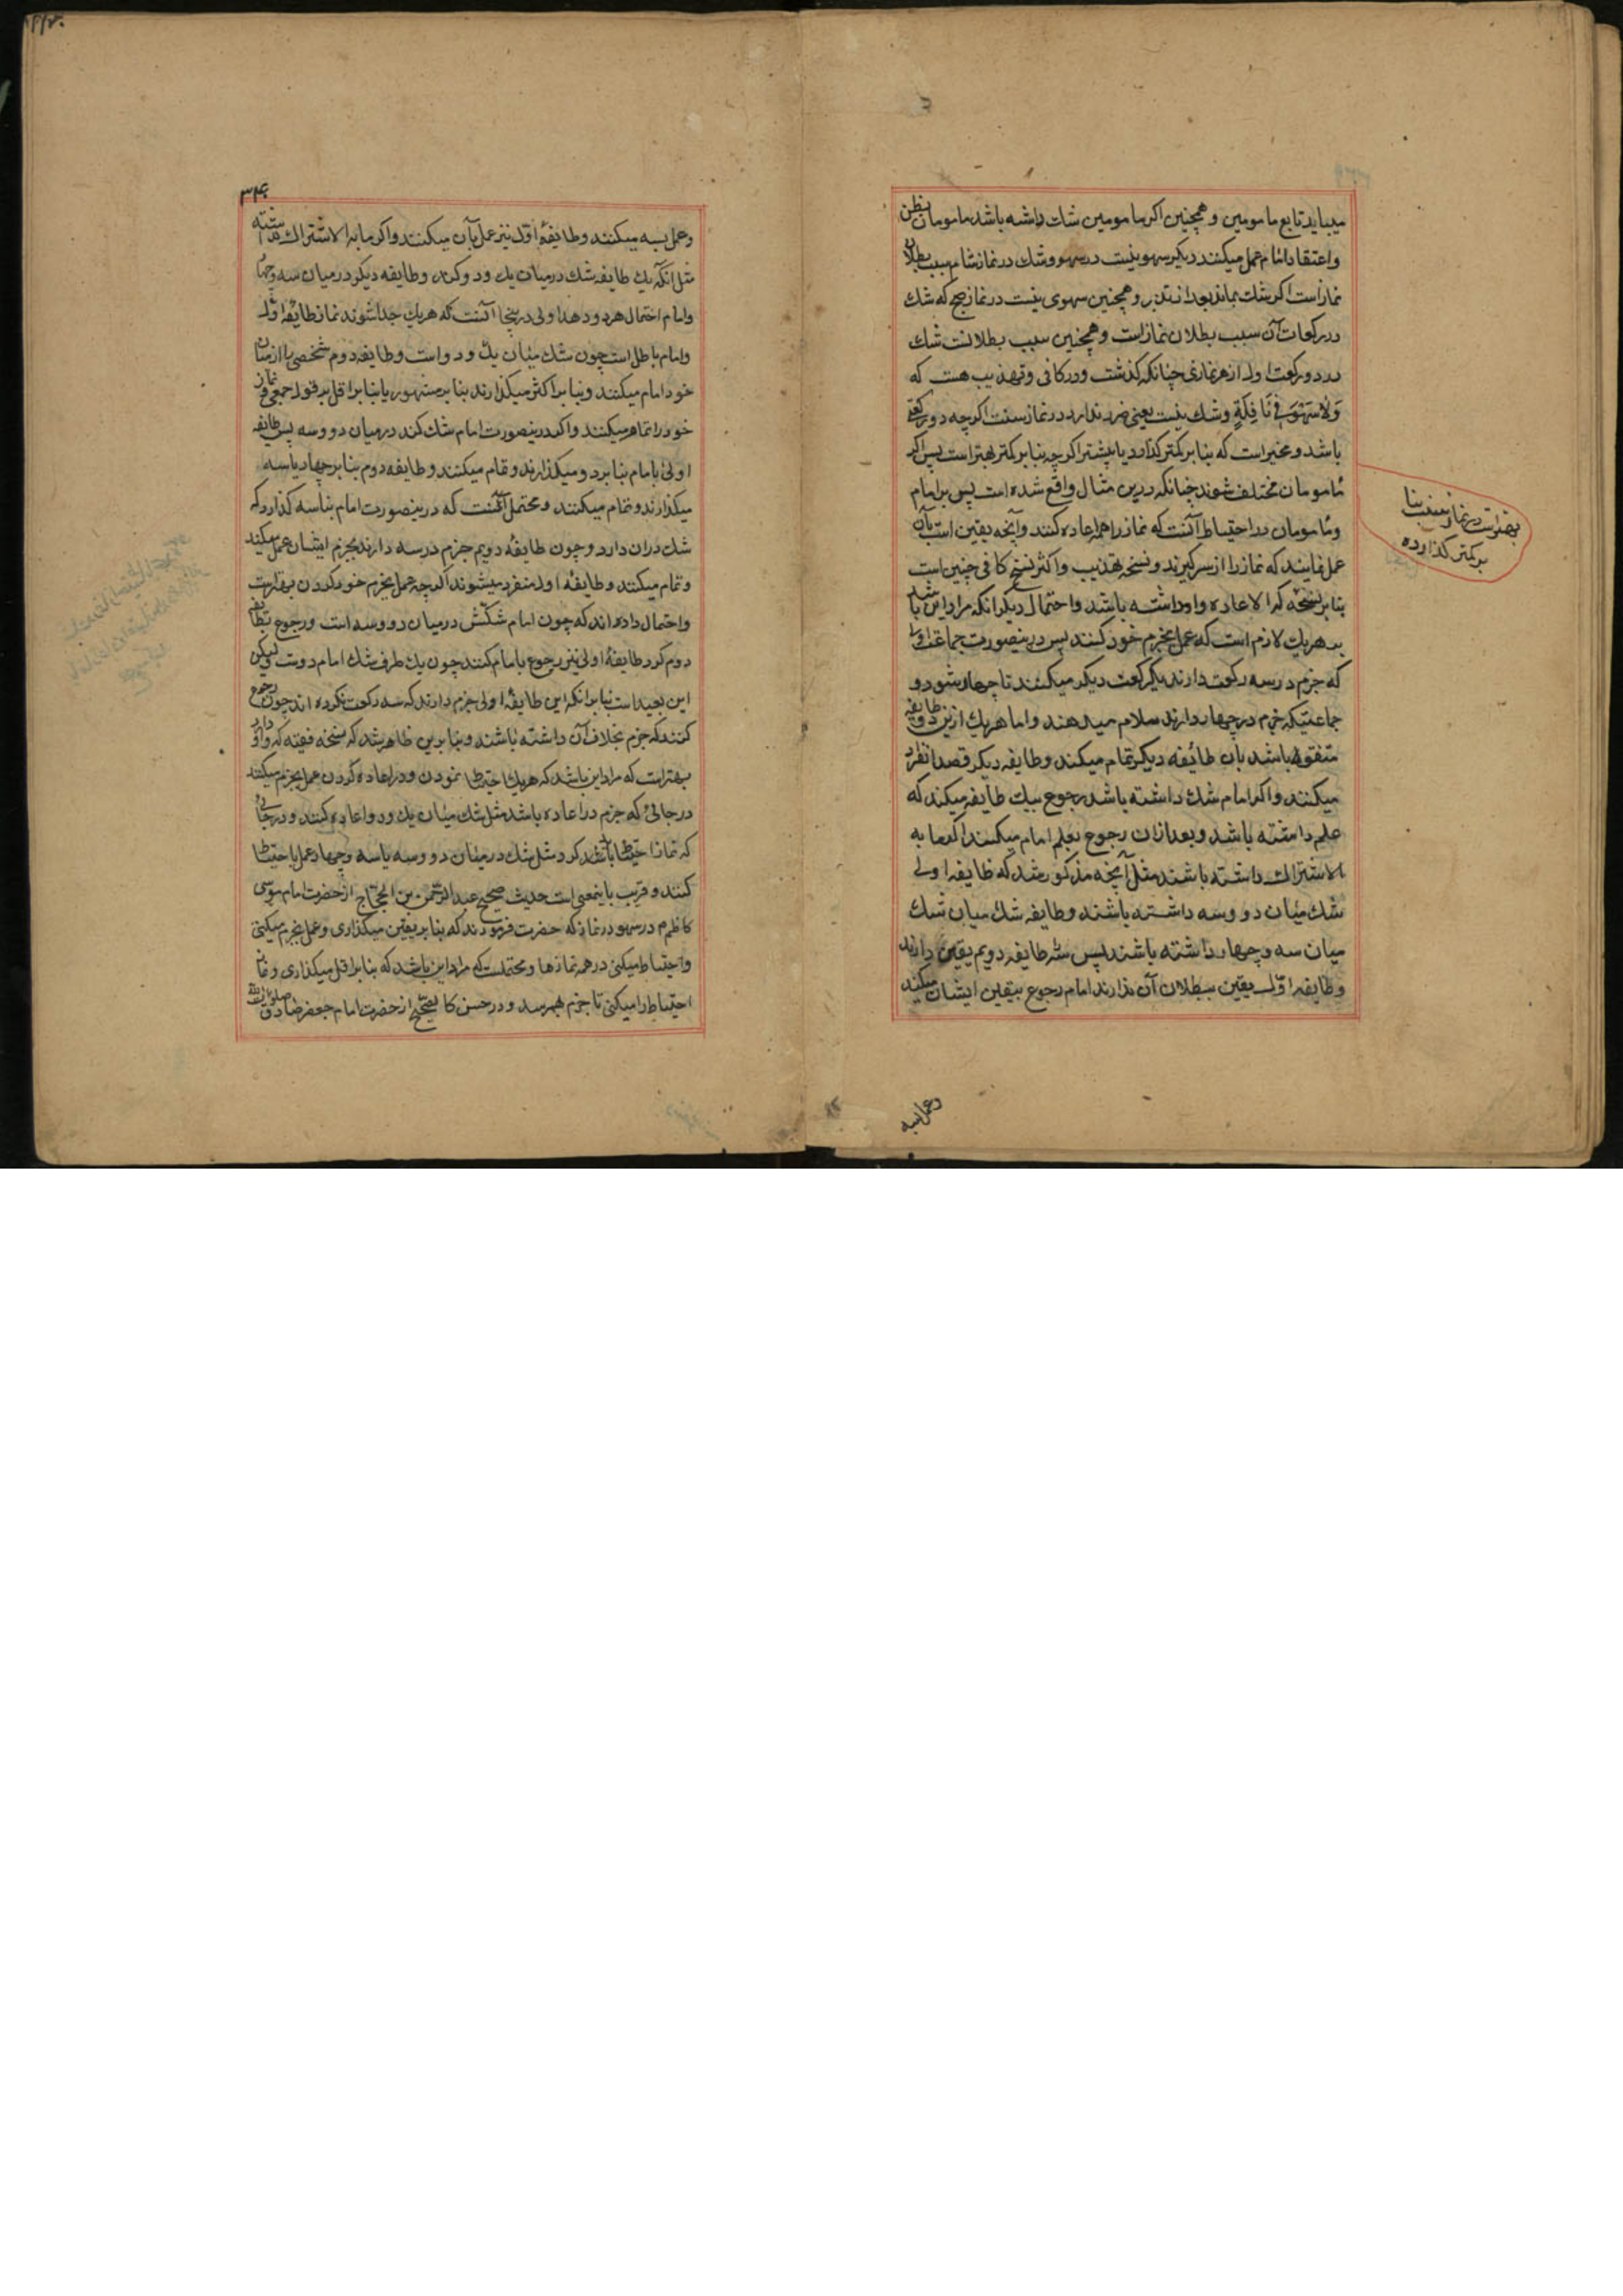 میباید تابع مامومین و همچنین اکر مامومین شک داشه باشد مامومان بظن
و اعتقاد امام عمل میکنند دیکر سهو نیست در سهو و شک در نماز شام سبب بطلان
نماز است اکر شک بماند بعد از تدبر و همچنین سهوی نیست در نماز صبح که شک
در رکعات آن سبب بطلان نماز است و همچنین سبب بطلانست شک
در دو رکعت اول از هر نمازی چنانکه کذشت و در کافی و تهذیب هست که
وَلَا سَهْوَ فِي نَافِلَةٍ و شک نیست یعنی ضرر ندارد در نماز سنت اکرچه دو رکعتی
باشد و مخیر است که بنا بر کمتر کذارد یا بیشتر اکرچه بنا بر کمتر بهتر است پس اکر
مامومان مختلف شوند چنانکه درین مثال واقع شده است پس بر امام
و مامومان در احتیاط آنست که نماز را همه اعاده کنند و آنچه یقین است بآن
عمل نمایند که نماز را از سر کیرند و نسخه تهذیب و اکثر نسخ کافی چنین است
بنا بر نسخه که الاعاده واو داشته باشد و احتمال دیکر انکه مراد این باشد
بر هریک لازم است که عمل بجزم خود کنند پس درینصورت جماعت اولی
که جزم در سه رکعت دارند یکرکعت دیکر میکنند تا چهار شود و
جماعتیکه جزم در چهار دارند سلام میدهند و امام هریک ازین دو طایفه
متفق باشد بان طائفه دیکر تمام میکند و طایفه دیکر قصد انفراد
میکنند و اکر امام شک داشته باشد رجوع بیک طایفه میکند که
علم داشته باشد و بعد از ان رجوع بعلم امام میکنند اکر ما به
الاشتراک داشته باشند مثل آنچه مذکور شد که طایفه اولی
شک میان دو و سه داشته باشند و طایفه شک میان شک
میان سه و چهار داشته باشند پس سه طایفه دویم یقین دارند
و طایفه اول یقین ببطلان آن ندارند امام رجوع بیقین ایشان میکند
بهتر است در نماز سنت بنا
بر کمتر کذارده
و عمل بسه
۳۴۰
و عمل بسه میکنند و طایفهٔ اول نیز عمل بآن میکنند و اکر ما به الاشتراک نداشته
مثل انکه یک طایفه شک درمیان یک و دو کند و طایفه دیکر درمیان سه و چهار
و امام احتمال هر دو دهد اولی درینجا آنست که هریک جدا شوند نماز طایفه اول
و امام باطل است چون شک میان یک و دو است و طایفه دوم شخصی را از میان
خود امام میکنند و بنا بر اکثر میکذارند بنا بر مشهور یا بنا بر اقل بر قول جمعی و نماز
خود را تمام میکنند و اکر درینصورت امام شک کند درمیان دو و سه پس طایفه
اولی با امام بنا بر دو میکذارند و تمام میکنند و طایفه دوم بنا بر چهار یا سه
میکذارند و تمام میکنند و محتمل آنست که درینصورت امام بنا بسه کذارد که
شک دران دارد و چون طایفهٔ دویم جزم در سه دارند بجزم ایشان عمل میکند
و تمام میکنند و طایفهٔ اول منفرد میشوند اکرچه عمل بجزم خود کردن بهتر است
و احتمال داده اند که چون امام شکش درمیان دو و سه است و رجوع بطایفه
دوم کرد طایفهٔ اولی نیز رجوع بامام کنند چون یک طرف شک امام دوست و لیکن
این بعید است بنا بر انکه این طایفهٔ اولی جزم دارند که سه رکعت نکرده اند چون رجوع
کنند که جزم بخلاف آن داشته باشند و بنا برین ظاهر شد که نسخه فقیه که واو دارد
بهتر است که مراد این باشد که هریک احتیاط نمودن و در اعاده کردن عمل بجزم میکنند
در جائی که جزم در اعاده باشد مثل شک میان یک و دو اعاده کنند و در جائی
که نماز احتیاط باید کرد مثل شک درمیان دو و سه یا سه و چهار عمل باحتیاط
کنند و قریب باینمعنی است حدیث صحیح عبدالرحمن بن الحجاج از حضرت امام موسی
کاظم م در سهو در نماز که حضرت فرمودند که بنا بر یقین میکذاری و عمل بجزم میکنی
و احتیاط میکنی در همه نمازها و محتملست که مراد این باشد که بنا بر اقل میکذاری و نماز
احتیاط را میکنی تا جزم بهم رسد و در حسن کا لصحیح از حضرت امام جعفر صادق صلوات الله